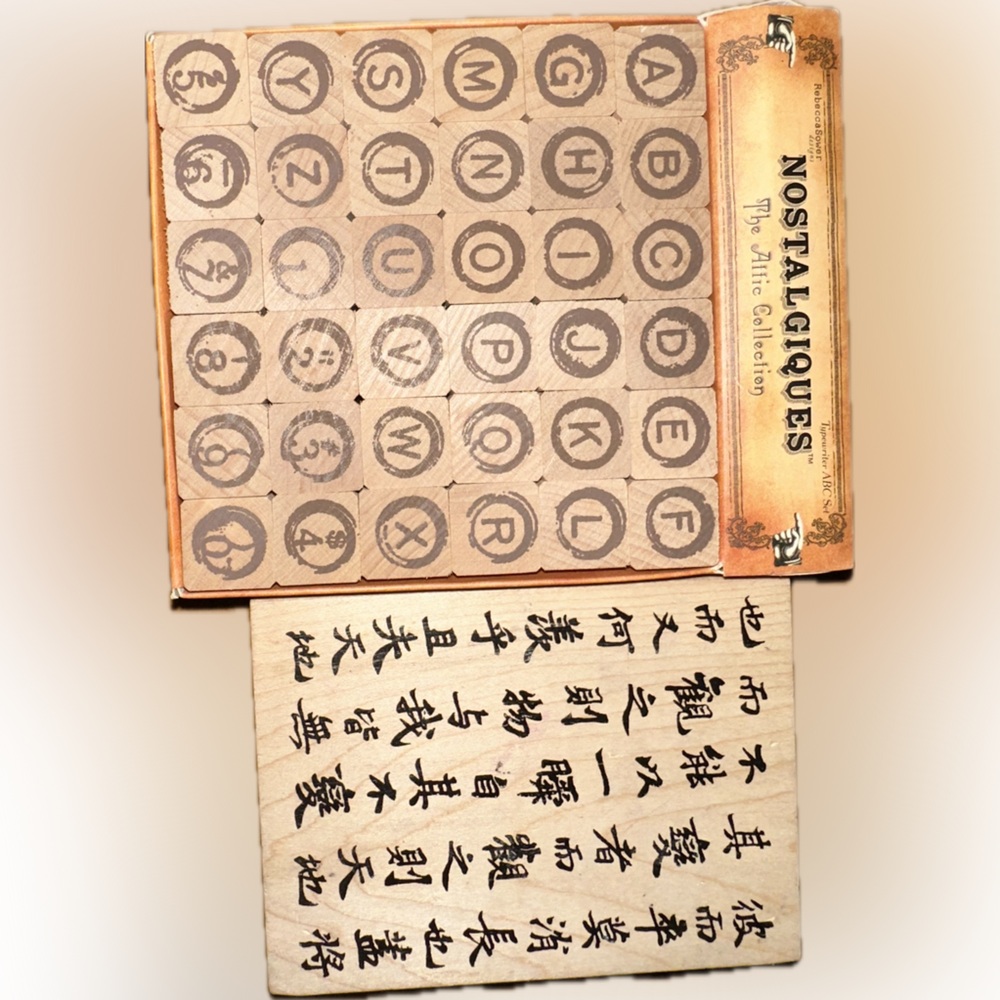 RebeccaSower
designs
Typewriter ABC Set
NOSTALGIQUES™
The Attic Collection
A B C D E F
G H I J K L
M N O P Q R
S T U V W X
Y Z 1 "2 #3 $4
%5 _6 &7 '8 9 0
彼而卒莫消長也蓋將
其變者而觀之則天地
不能以一瞬自其不變
而觀之則物与我皆無
也而又何羨乎且夫天地